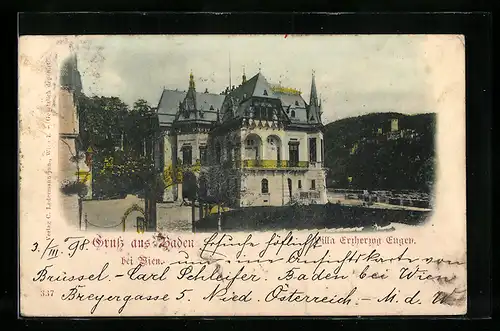 Gruß aus Baden
bei Wien.
Villa Erzherzog Eugen.
3./III 98. höflichst
um eine Ansichtskarte von
Brüssel. – Carl Schleifer. Baden bei Wien
Breyergasse 5. Nied. Österreich. – M. d. W
337
Verlag C. Ledermann jun., Wien